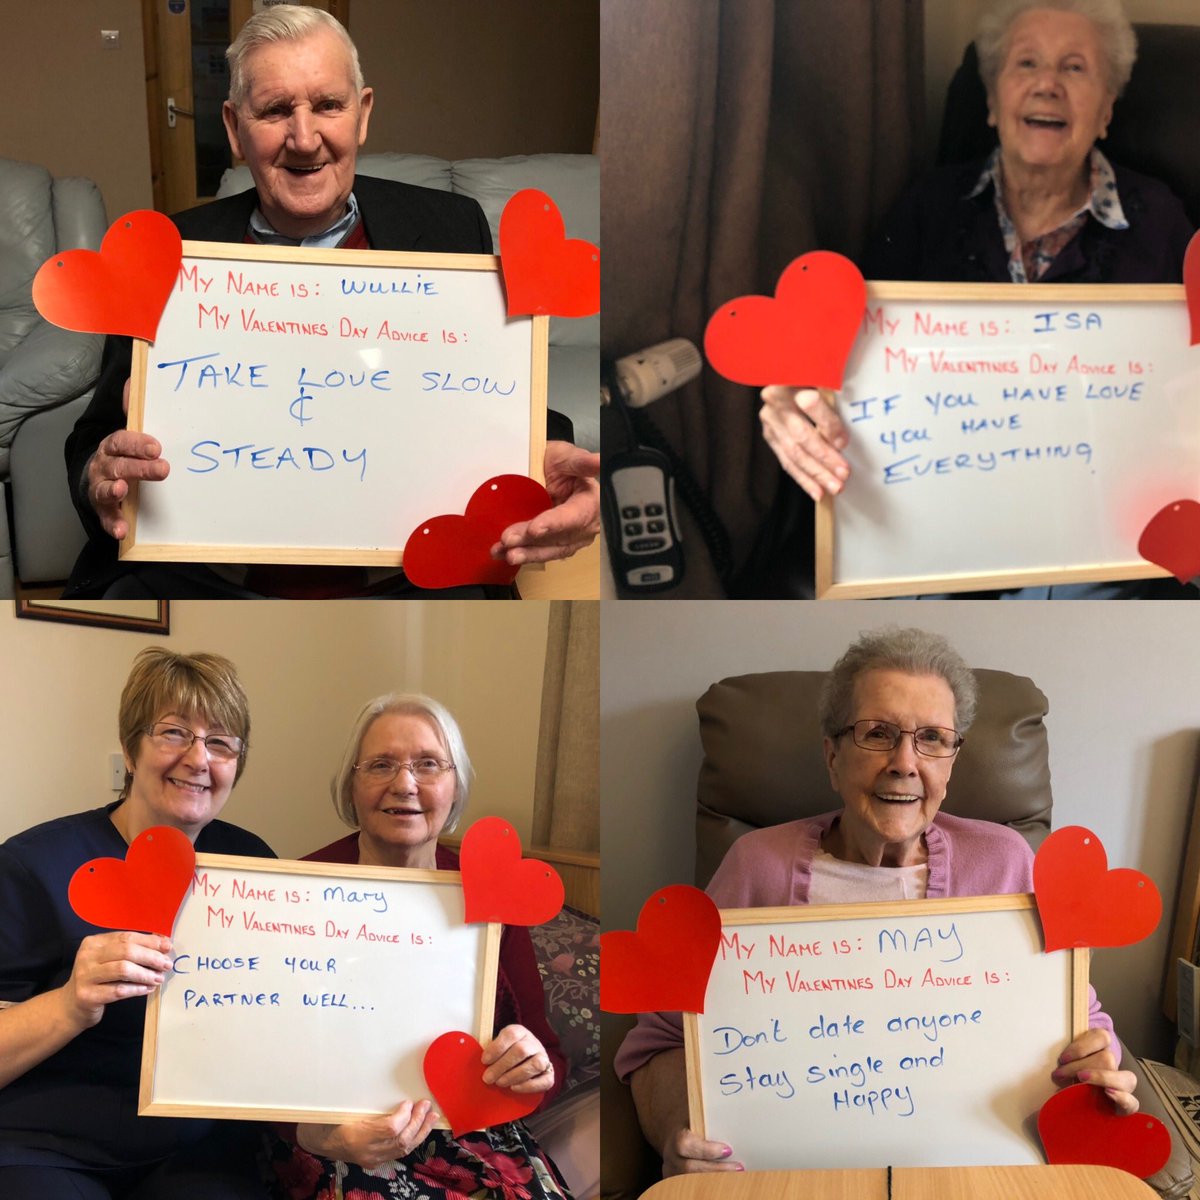 MEDICAL
MY NAME IS: WULLIE
MY VALENTINES DAY ADVICE IS:
TAKE LOVE SLOW
&
STEADY
MY NAME IS: ISA
MY VALENTINES DAY ADVICE IS:
IF YOU HAVE LOVE
YOU HAVE
EVERYTHING.
MY NAME IS: Mary
MY VALENTINES DAY ADVICE IS:
CHOOSE YOUR
PARTNER WELL...
MY NAME IS: MAY
MY VALENTINES DAY ADVICE IS:
Don't date anyone
Stay Single and
Happy